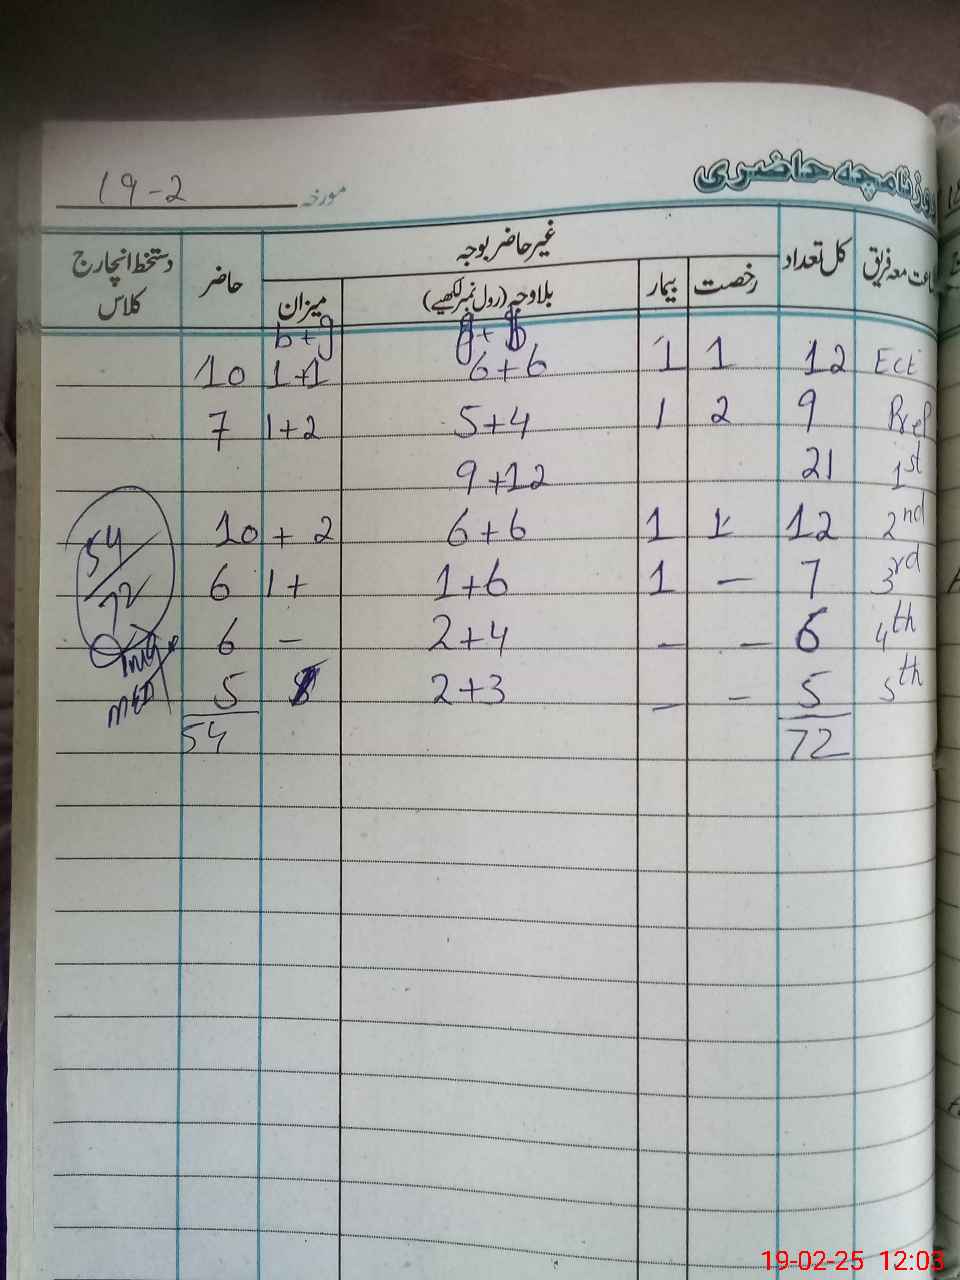 روزنامچہ حاضری
مورخہ 19-2
جماعت معہ فریق کل تعداد غیر حاضر بوجہ حاضر دستخط انچارج کلاس
رخصت بیمار بلاوجہ (رول نمبر لکھیے) میزان
g + b b + g
Ece 12 1 1 6+6 1+1 10
Prep 9 2 1 5+4 1+2 7
1st 21 9+12
2nd 12 1 1 6+6 + 2 10
3rd 7 – 1 1+6 1 + 6
4th 6 – – 2+4 – 6
5th 5 – – 2+3 5
72 54
54/72